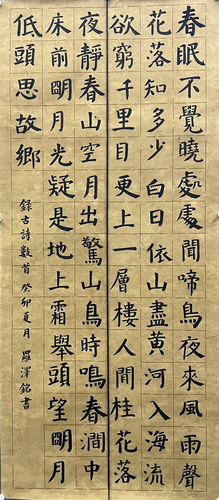 春眠不覺曉處處聞啼鳥夜來風雨聲
花落知多少白日依山盡黃河入海流
欲窮千里目更上一層樓人間桂花落
夜靜春山空月出驚山鳥時鳴春澗中
床前明月光疑是地上霜舉頭望明月
低頭思故鄉
錄古詩數首 癸卯夏月 羅澤銘書